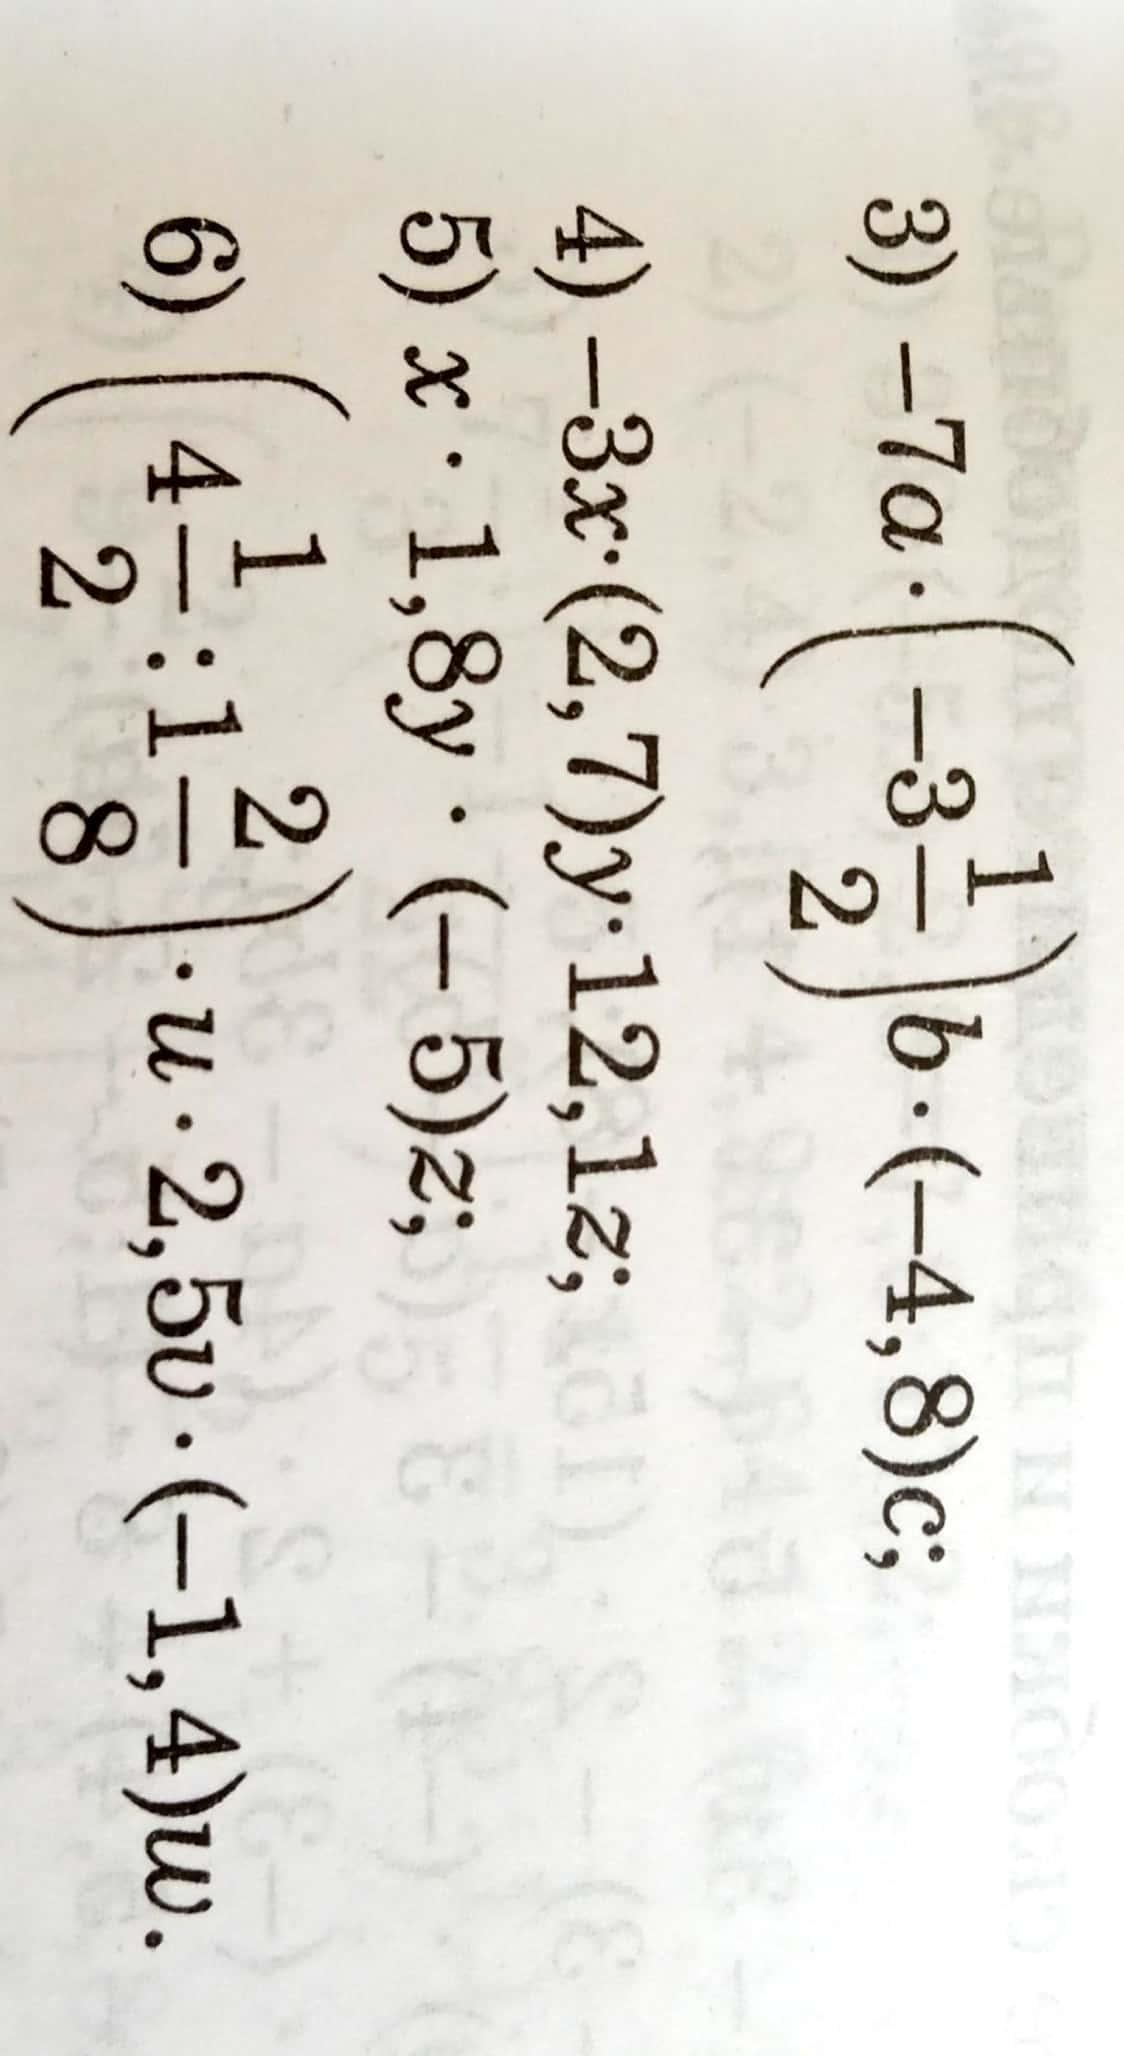 3) −7a · (−3 1/2)b · (−4,8)c;
4) −3x·(2,7)y·12,1z;
5) x · 1,8y · (− 5)z;
6) (4 1/2 : 1 2/8) · u · 2,5v · (−1,4)w.